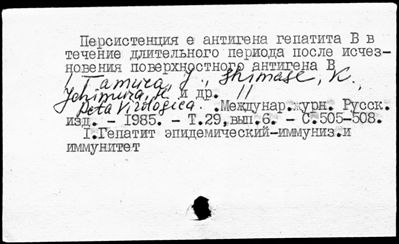 Персистенция е антигена гепатита В в
течение длительного периода после исчез-
новения поверхностного антигена В
/ Tamura, J., Shimase, K.,
Johimura, H. и др. //
Acta Virologica. .Междунар.журн. Русск.
изд. - 1985. - Т.29,вып.6. - С.505-508.
I.Гепатит эпидемический-иммуниз.и
иммунитет